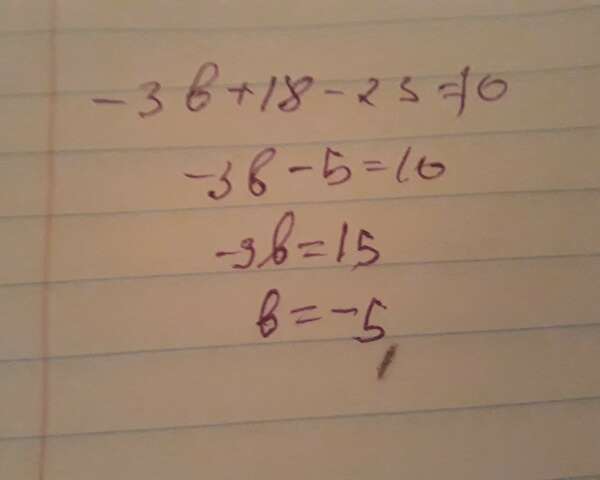 -3b+18-23=10
-3b-5=10
-3b=15
b=-5